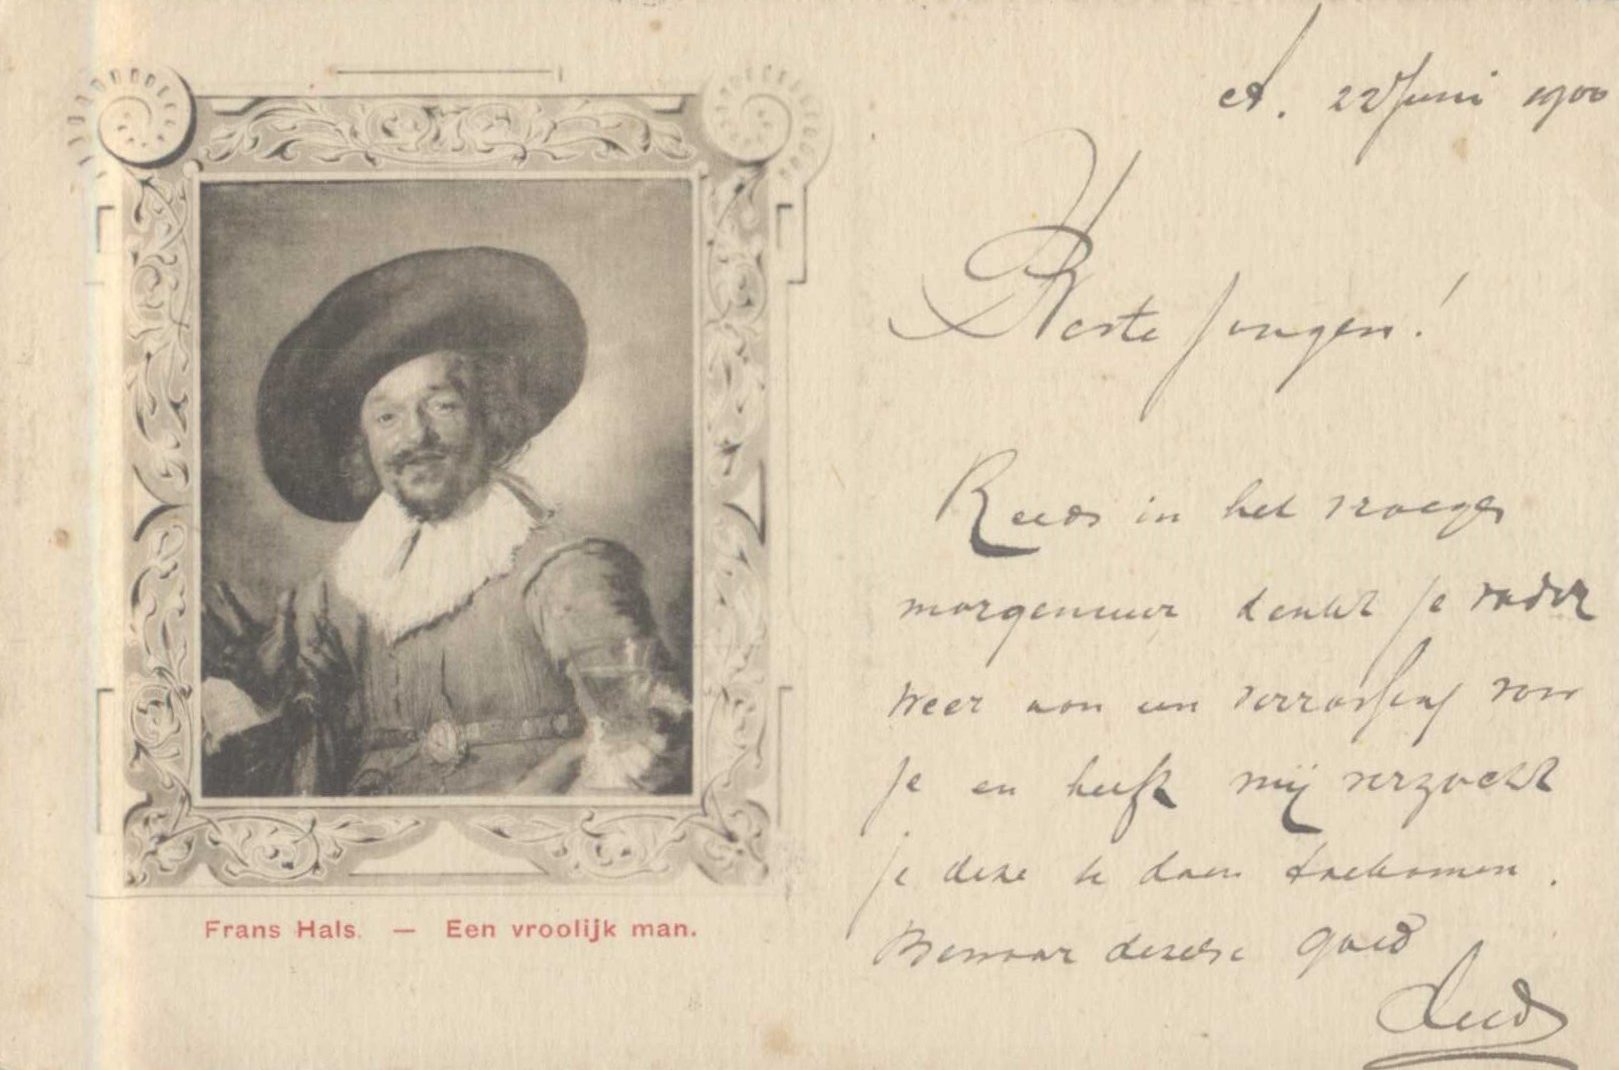 A. 22 Juni 1900
Beste jongen!
Reeds in het vroege
morgenuur denkt je vader
weer aan een verrassing voor
je en heeft mij verzocht
je deze te doen toekomen.
Bewaar dezelve goed
Frans Hals. — Een vroolijk man.